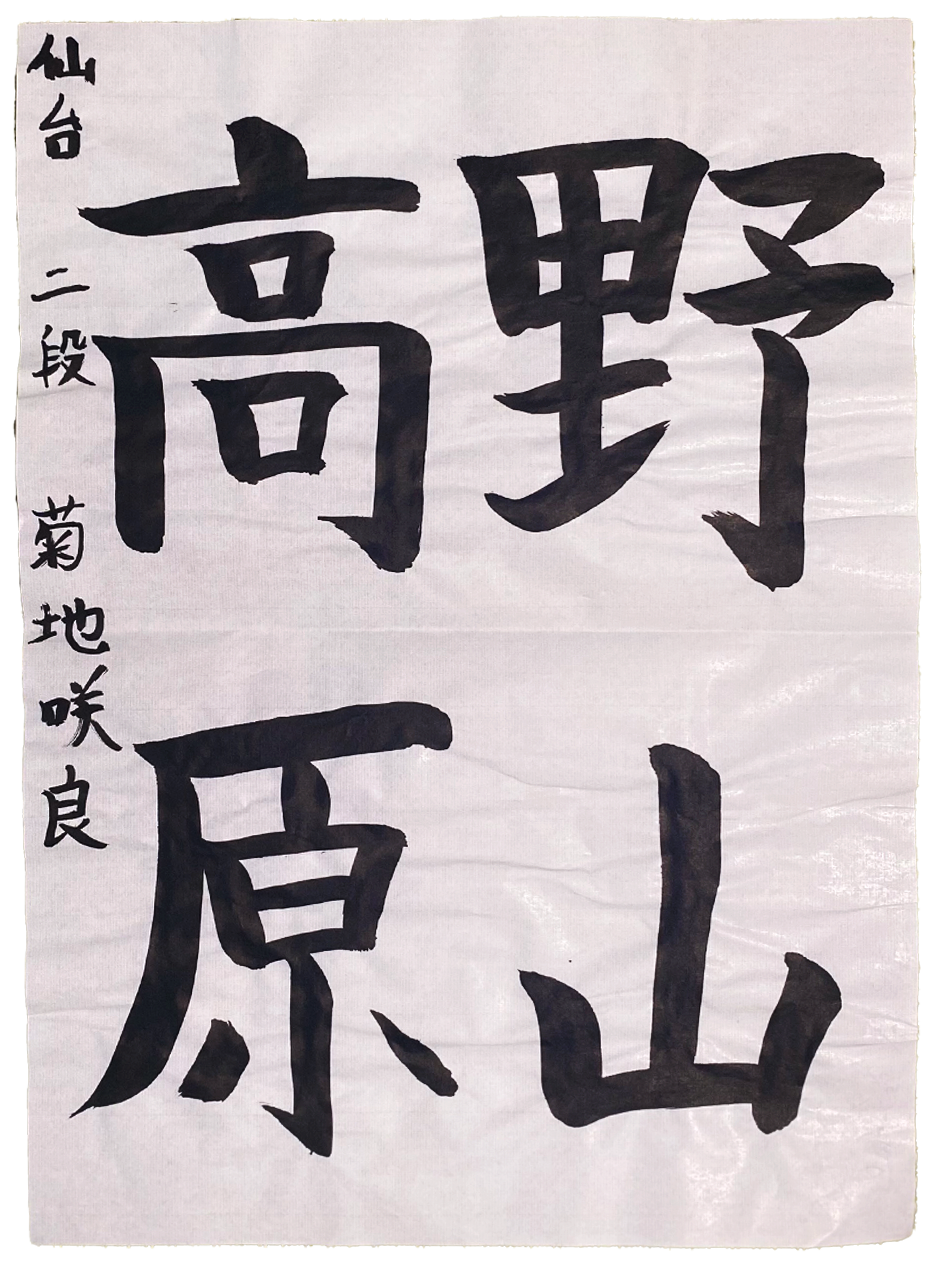 野山
高原
仙台 二段 菊地咲良